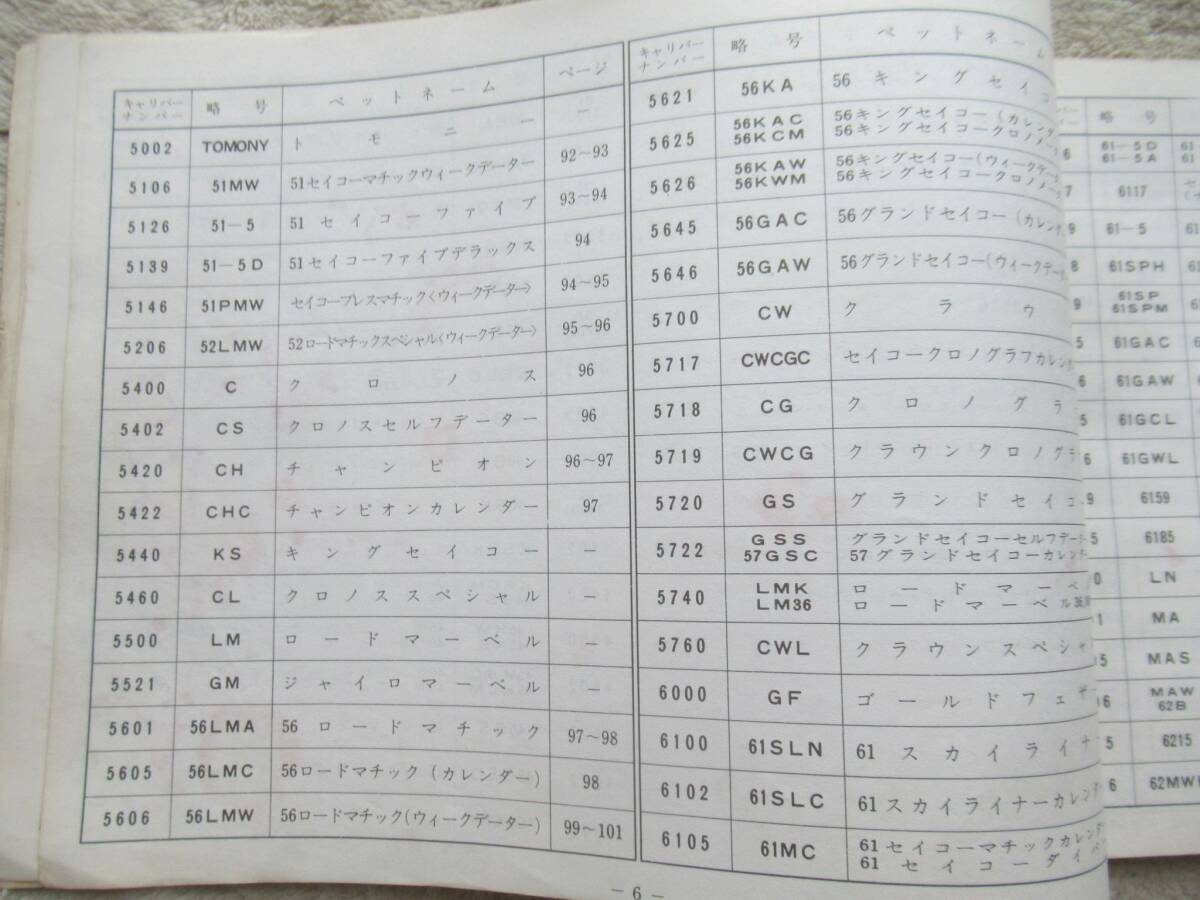 キャリバーナンバー 略号 ペットネーム ページ
5002 TOMONY トモニー —
5106 51MW 51セイコーマチックウィークデーター 92～93
5126 51—5 51セイコーファイブ 93～94
5139 51—5D 51セイコーファイブデラックス 94
5146 51PMW セイコープレスマチック〈ウィークデーター〉 94～95
5206 52LMW 52ロードマチックスペシャル〈ウィークデーター〉 95～96
5400 C クロノス 96
5402 CS クロノスセルフデーター 96
5420 CH チャンピオン 96～97
5422 CHC チャンピオンカレンダー 97
5440 KS キングセイコー —
5460 CL クロノススペシャル —
5500 LM ロードマーベル —
5521 GM ジャイロマーベル —
5601 56LMA 56ロードマチック 97～98
5605 56LMC 56ロードマチック(カレンダー) 98
5606 56LMW 56ロードマチック(ウィークデーター) 99～101
キャリバーナンバー 略号 ペットネーム
5621 56KA 56キングセイコ
5625 56KAC 56キングセイコー(カレンダ
56KCM 56キングセイコークロノメータ
5626 56KAW 56キングセイコー(ウィークデー
56KWM 56キングセイコークロノメー
5645 56GAC 56グランドセイコー(カレン
5646 56GAW 56グランドセイコー(ウィークデー
5700 CW クラウ
5717 CWCGC セイコークロノグラフカレン
5718 CG クロノグラ
5719 CWCG クラウンクロノグラ
5720 GS グランドセイコ
5722 GSS グランドセイコーセルフデー
57GSC 57グランドセイコーカレン
5740 LMK ロードマーベ
LM36 ロードマーベル36,
5760 CWL クラウンスペシャ
6000 GF ゴールドフェザ
6100 61SLN 61スカイライナ
6102 61SLC 61スカイライナーカレンダ
6105 61MC 61セイコーマチックカレン
61セイコーダイバ
— 6 —
略号
6 61—5D 61
61—5A 61
7 6117
9 61—5
8 61SPH
9 61SP
61SPM
5 61GAC
6 61GAW
5 61GCL
6 61GWL
9 6159
5 6185
0 LN
1 MA
05 MAS
06 MAW
62B
5 6215
6 62MW